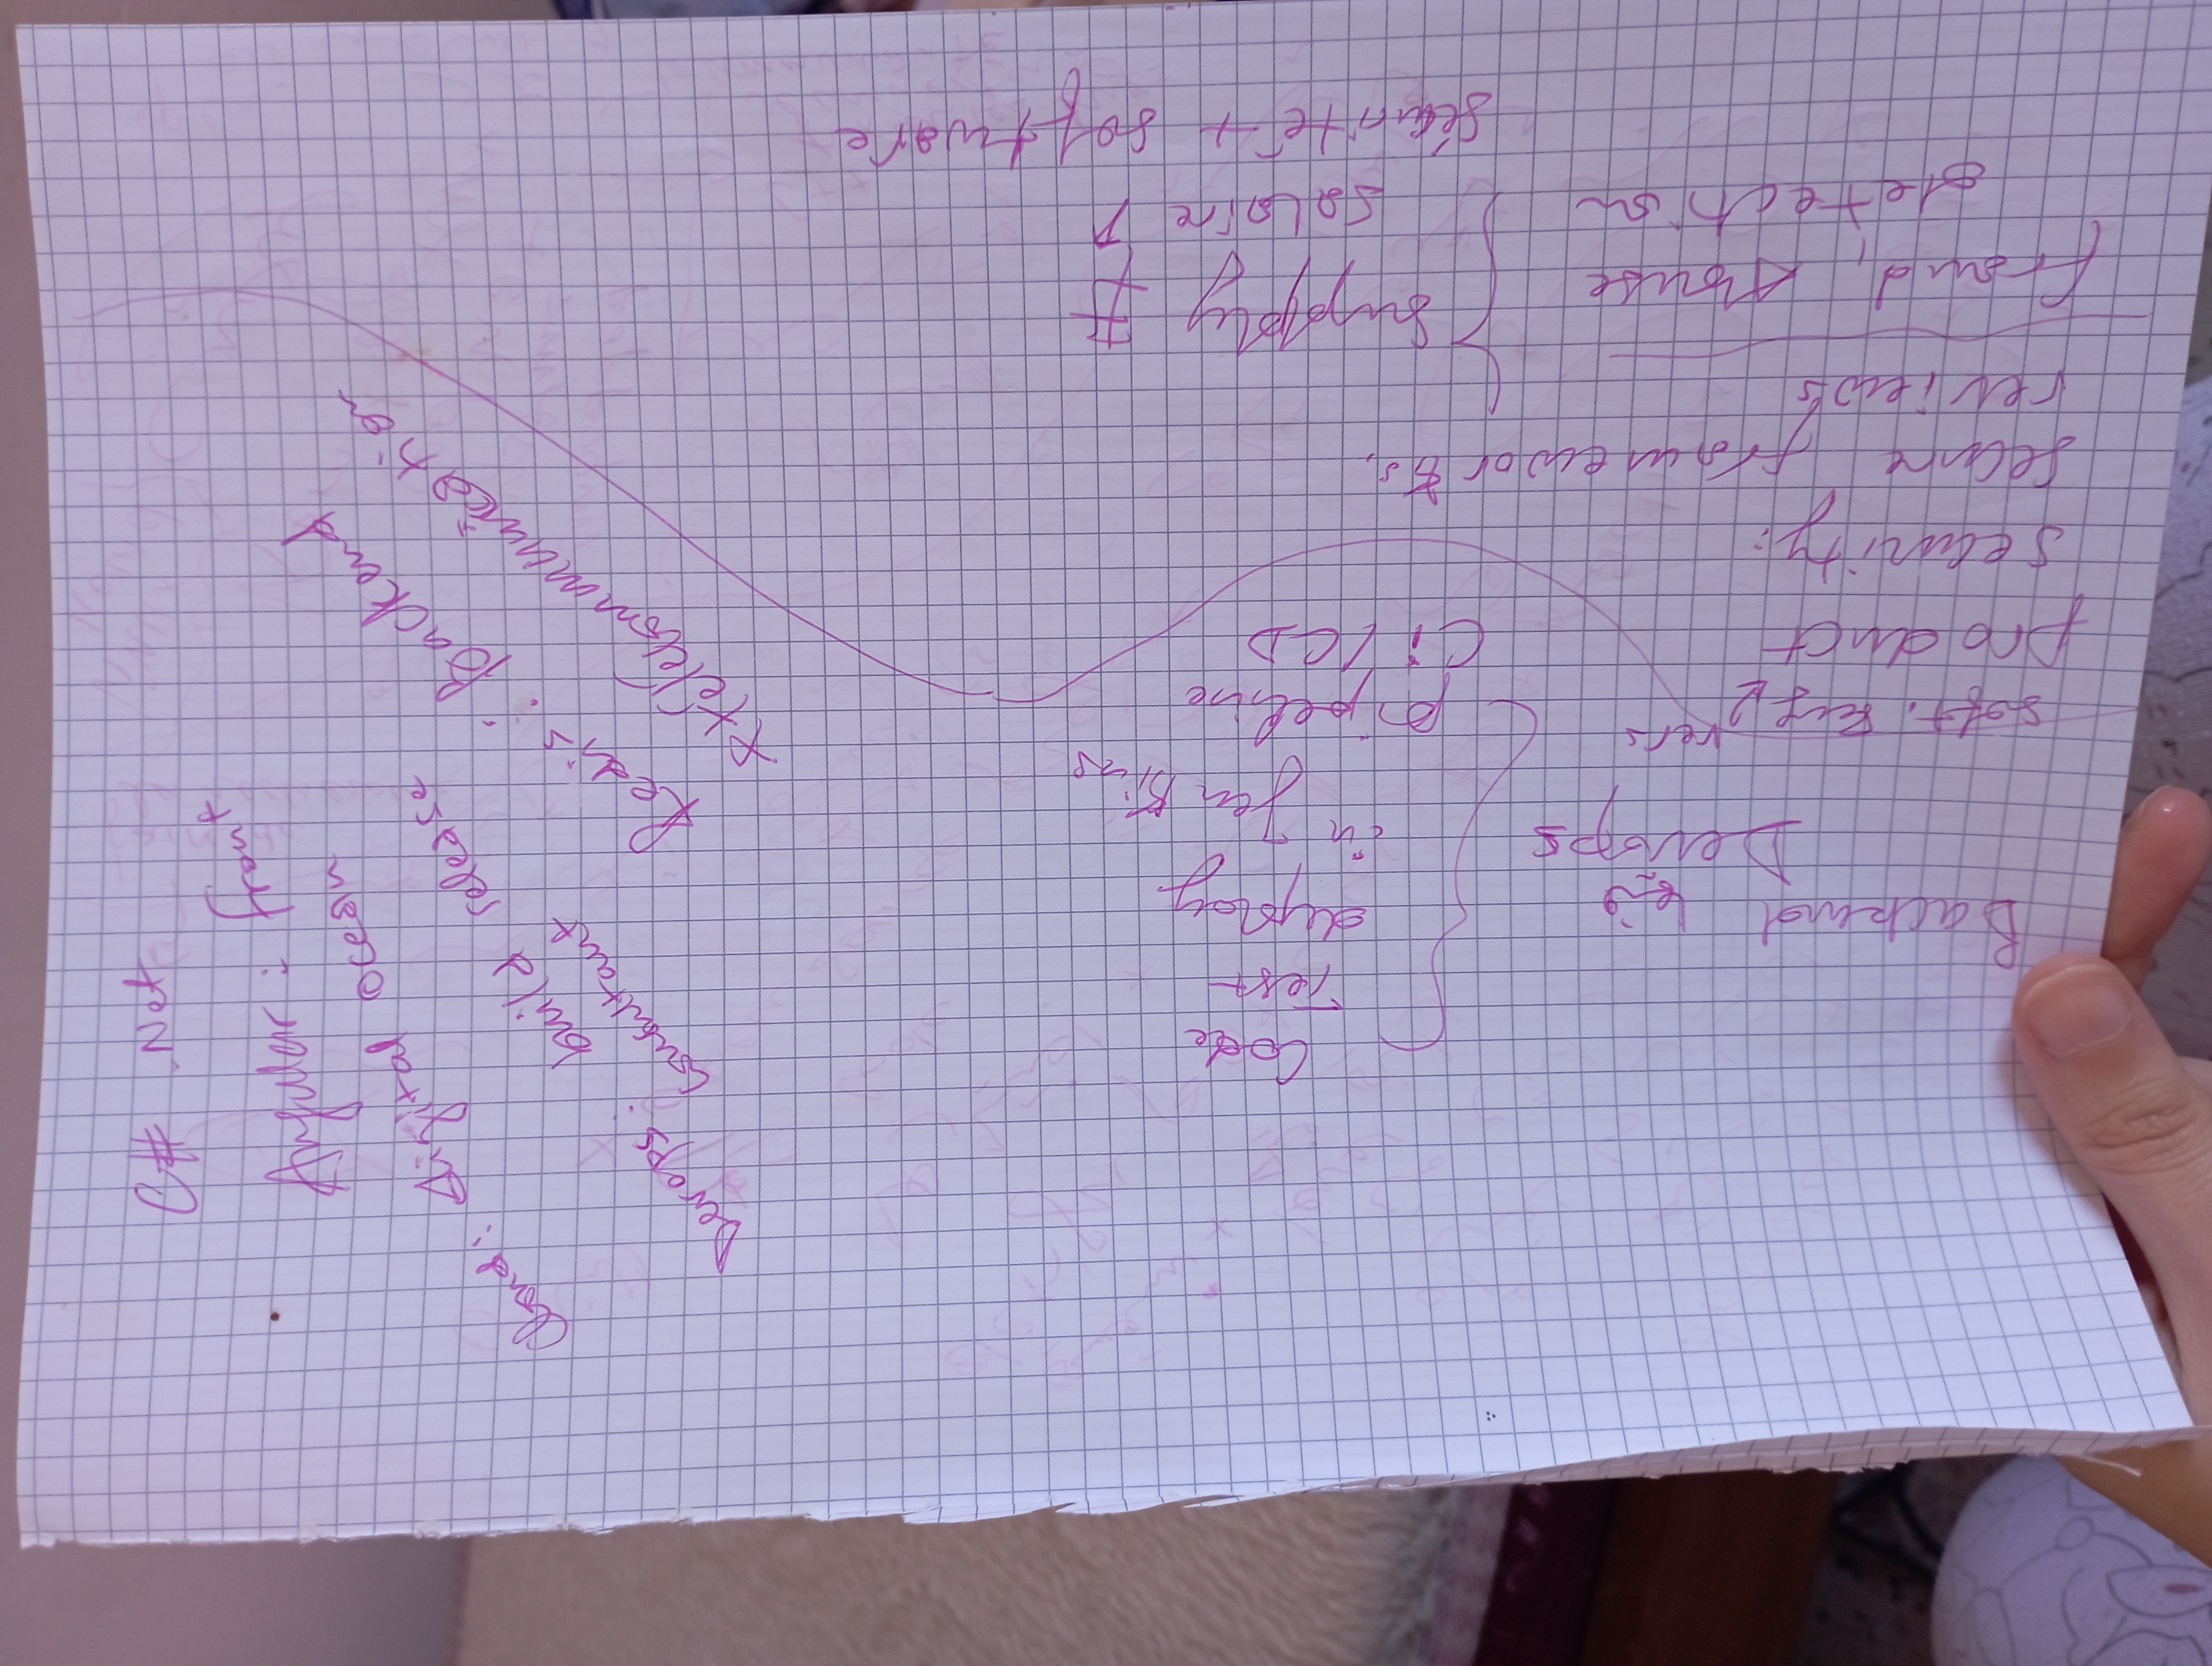 C# .Net
Angular : front
Cloud : Digital ocean
Devops : build release
consultant
Redis : Backend
télécommunication
Code
Test
deploy
in Jenkins
pipeline
Ci/CD
Backend
big
Devops
soft. eng vers
product
security:
secure frameworks,
reviews
fraud, Abuse
detection
Supply #
Salaire ↑
Sécurité + software